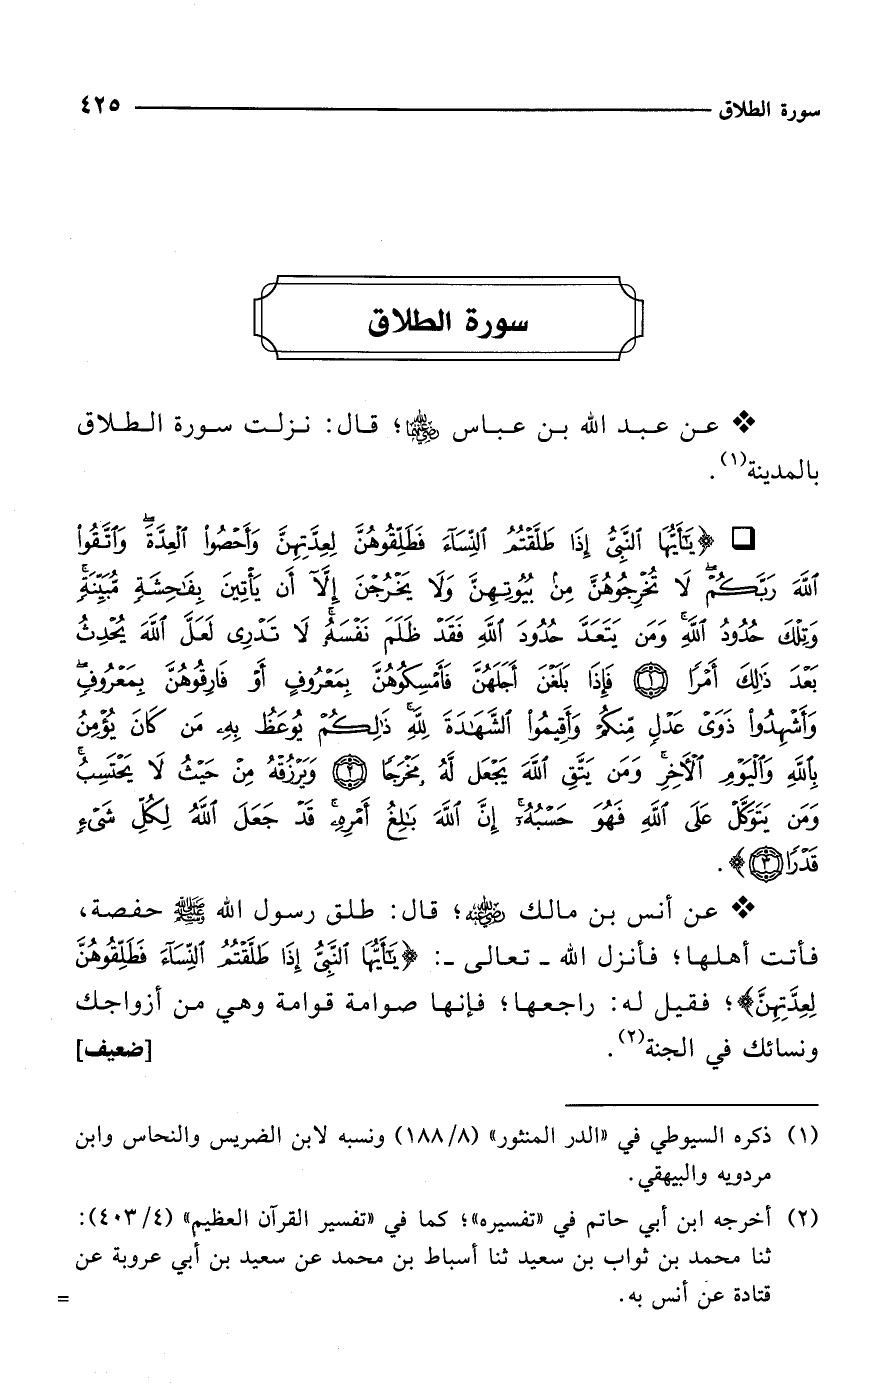 سورة الطلاق ٤٢٥
سورة الطلاق
❖ عـن عـبـد الله بـن عـبـاس ﵄؛ قـال: نـزلـت سـورة الـطـلاق
بالمدينة(١).
❑ ﴿يَٰٓأَيُّهَا ٱلنَّبِيُّ إِذَا طَلَّقْتُمُ ٱلنِّسَآءَ فَطَلِّقُوهُنَّ لِعِدَّتِهِنَّ وَأَحْصُوا۟ ٱلْعِدَّةَ ۖ وَٱتَّقُوا۟
ٱللَّهَ رَبَّكُمْ ۖ لَا تُخْرِجُوهُنَّ مِنۢ بُيُوتِهِنَّ وَلَا يَخْرُجْنَ إِلَّآ أَن يَأْتِينَ بِفَٰحِشَةٍ مُّبَيِّنَةٍ ۚ
وَتِلْكَ حُدُودُ ٱللَّهِ ۚ وَمَن يَتَعَدَّ حُدُودَ ٱللَّهِ فَقَدْ ظَلَمَ نَفْسَهُۥ ۚ لَا تَدْرِى لَعَلَّ ٱللَّهَ يُحْدِثُ
بَعْدَ ذَٰلِكَ أَمْرًا ١ فَإِذَا بَلَغْنَ أَجَلَهُنَّ فَأَمْسِكُوهُنَّ بِمَعْرُوفٍ أَوْ فَارِقُوهُنَّ بِمَعْرُوفٍ ۖ
وَأَشْهِدُوا۟ ذَوَىْ عَدْلٍ مِّنكُمْ وَأَقِيمُوا۟ ٱلشَّهَٰدَةَ لِلَّهِ ۚ ذَٰلِكُمْ يُوعَظُ بِهِۦ مَن كَانَ يُؤْمِنُ
بِٱللَّهِ وَٱلْيَوْمِ ٱلْـَٔاخِرِ ۚ وَمَن يَتَّقِ ٱللَّهَ يَجْعَل لَّهُۥ مَخْرَجًا ٢ وَيَرْزُقْهُ مِنْ حَيْثُ لَا يَحْتَسِبُ ۚ
وَمَن يَتَوَكَّلْ عَلَى ٱللَّهِ فَهُوَ حَسْبُهُۥٓ ۚ إِنَّ ٱللَّهَ بَٰلِغُ أَمْرِهِۦ ۚ قَدْ جَعَلَ ٱللَّهُ لِكُلِّ شَىْءٍ
قَدْرًا ٣﴾.
❖ عـن أنـس بـن مـالـك ﵁؛ قـال: طـلـق رسـول الله ﷺ حـفـصـة،
فـأتـت أهـلـهـا؛ فـأنـزل الله ـ تـعـالـى ـ: ﴿يَٰٓأَيُّهَا ٱلنَّبِيُّ إِذَا طَلَّقْتُمُ ٱلنِّسَآءَ فَطَلِّقُوهُنَّ
لِعِدَّتِهِنَّ﴾؛ فـقـيـل لـه: راجـعـهـا؛ فـإنـهـا صـوامـة قـوامـة وهـي مـن أزواجـك
ونسائك في الجنة(٢). [ضعيف]
(١) ذكره السيوطي في «الدر المنثور» (٨/ ١٨٨) ونسبه لابن الضريس والنحاس وابن
مردويه والبيهقي.
(٢) أخرجه ابن أبي حاتم في «تفسيره»؛ كما في «تفسير القرآن العظيم» (٤/ ٤٠٣):
ثنا محمد بن ثواب بن سعيد ثنا أسباط بن محمد عن سعيد بن أبي عروبة عن
قتادة عن أنس به. =